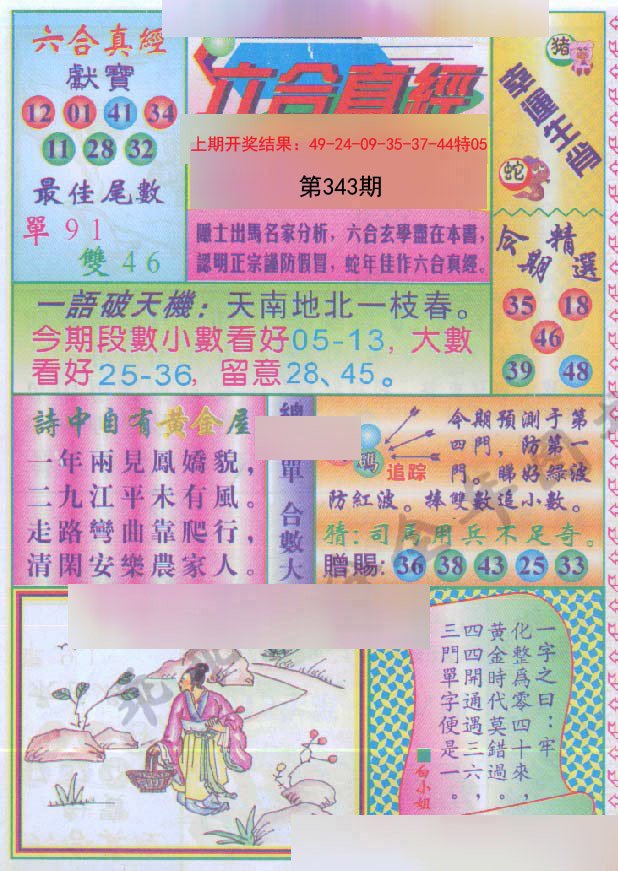 六合真經
獻寶
12 01 41 34
11 28 32
最佳尾數
單 9 1
雙 4 6
六合真經
上期开奖结果：49-24-09-35-37-44特05
第343期
隱士出馬名家分析，六合玄學盡在本書，
認明正宗謹防假冒，蛇年佳作六合真經。
猪
蛇
今期
精選
35 18
46
39 48
一語破天機：天南地北一枝春。
今期段數小數看好05-13，大數
看好25-36，留意28、45。
詩中自有黄金屋
一年兩見鳳嬌貌，
二九江平未有風。
走路彎曲靠爬行，
清閑安樂農家人。
總
單
合數大
碼
追踪
今期預測于第
四門，防第一
門，睇好綠波
防紅波。棒雙數追小數。
猜：司馬用兵不足奇。
贈賜：36 38 43 25 33
一字之曰：牢
化整爲零四十來，
黃金時代莫錯過。
四四開通遇三六，
三門單字便是一。
白小姐